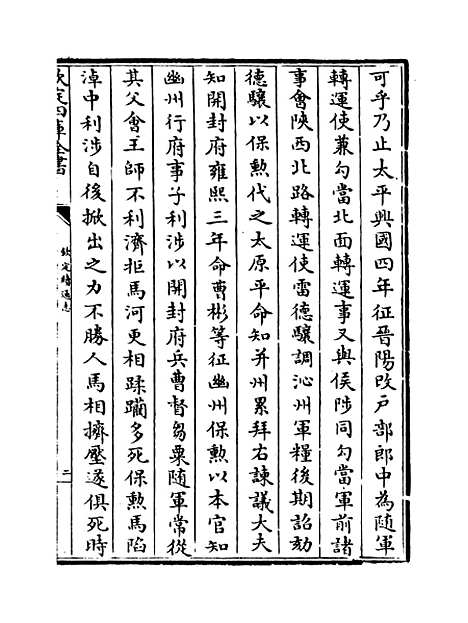 可乎乃止太平興國四年征晉陽改戶部郎中為隨軍
轉運使兼勾當北面轉運事又與侯陟同勾當軍前諸
事會陝西北路轉運使雷德驤調沁州軍糧後期詔劾
德驤以保勲代之太原平命知并州累拜右諫議大夫
知開封府雍熙三年命曹彬等征幽州保勲以本官知
幽州行府事子利涉以開封府兵曹督芻粟隨軍常從
其父會王師不利濟拒馬河更相蹂躪多死保勲馬陷
淖中利涉自後掀出之力不勝人馬相擠壓遂俱死時
欽定四庫全書
欽定續通志
二